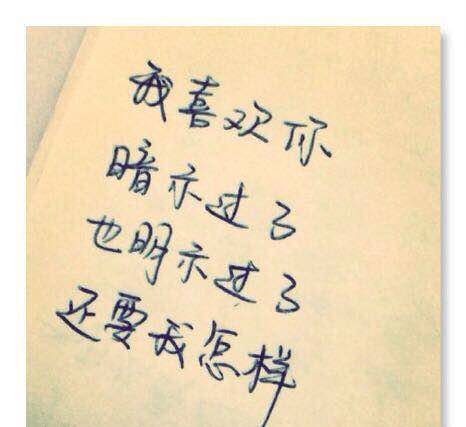 我喜欢你
暗示过了
也明示过了
还要我怎样